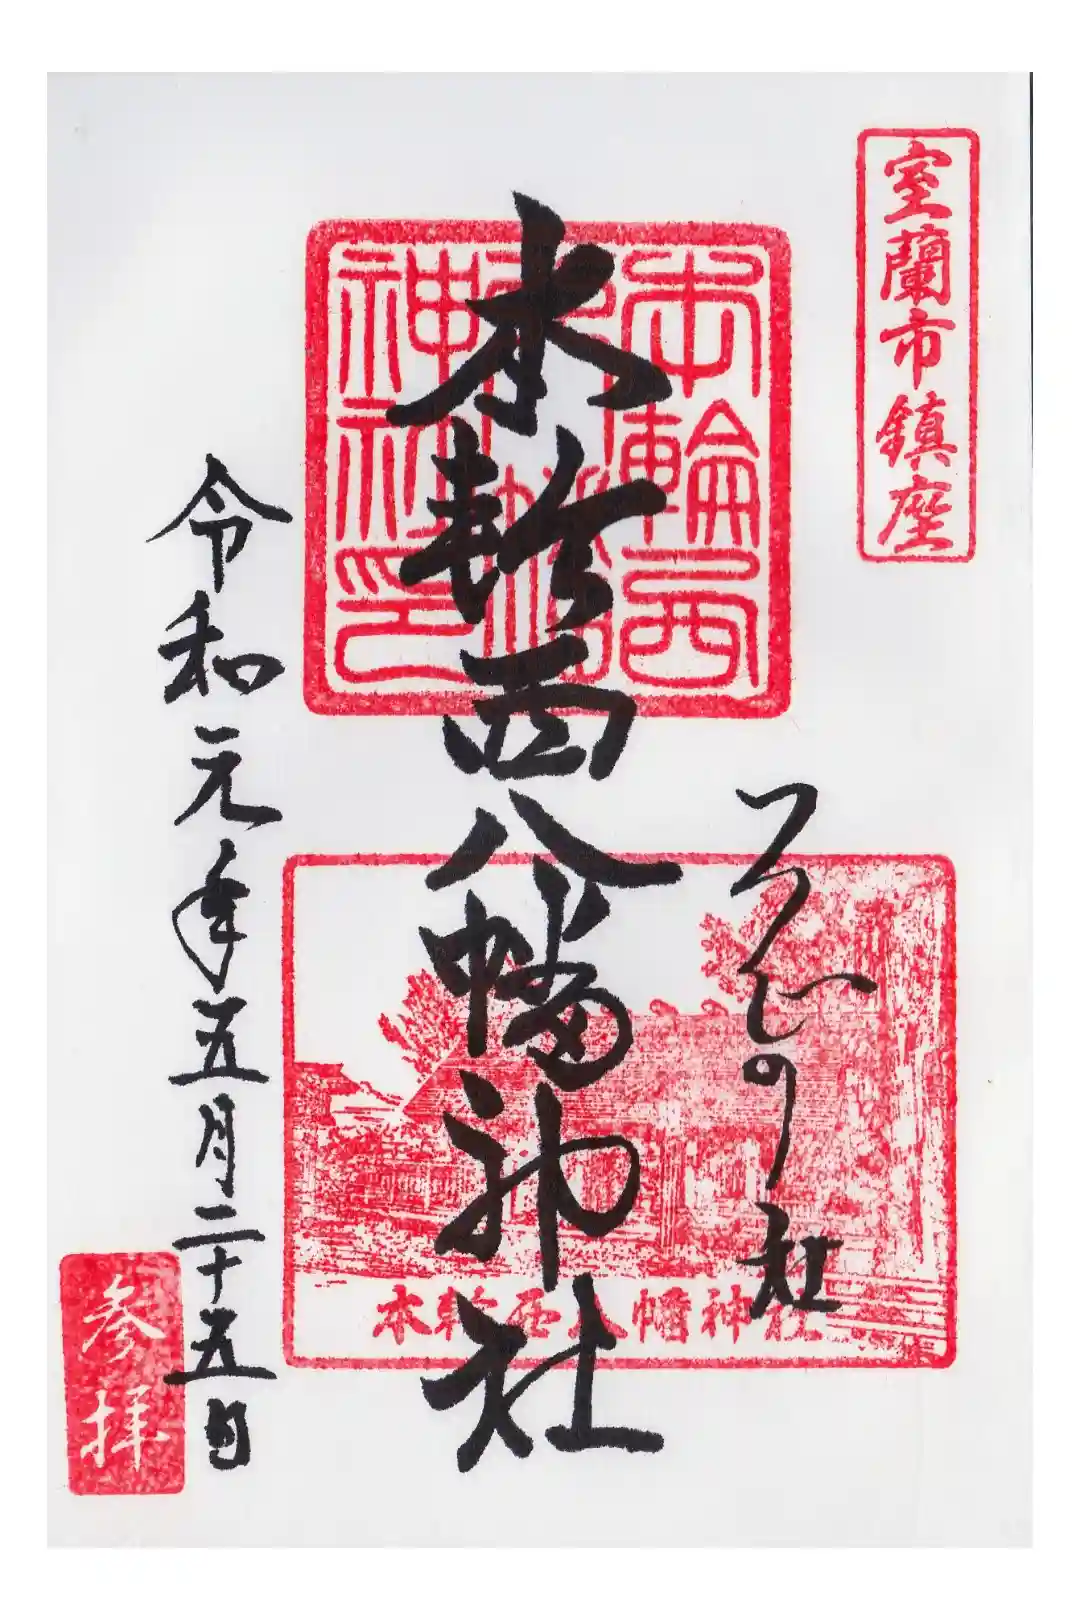 室蘭市鎮座
の社
本輪西八幡神社
本輪西
八幡
神社印
本輪西八幡神社
令和元年五月二十五日
参拝